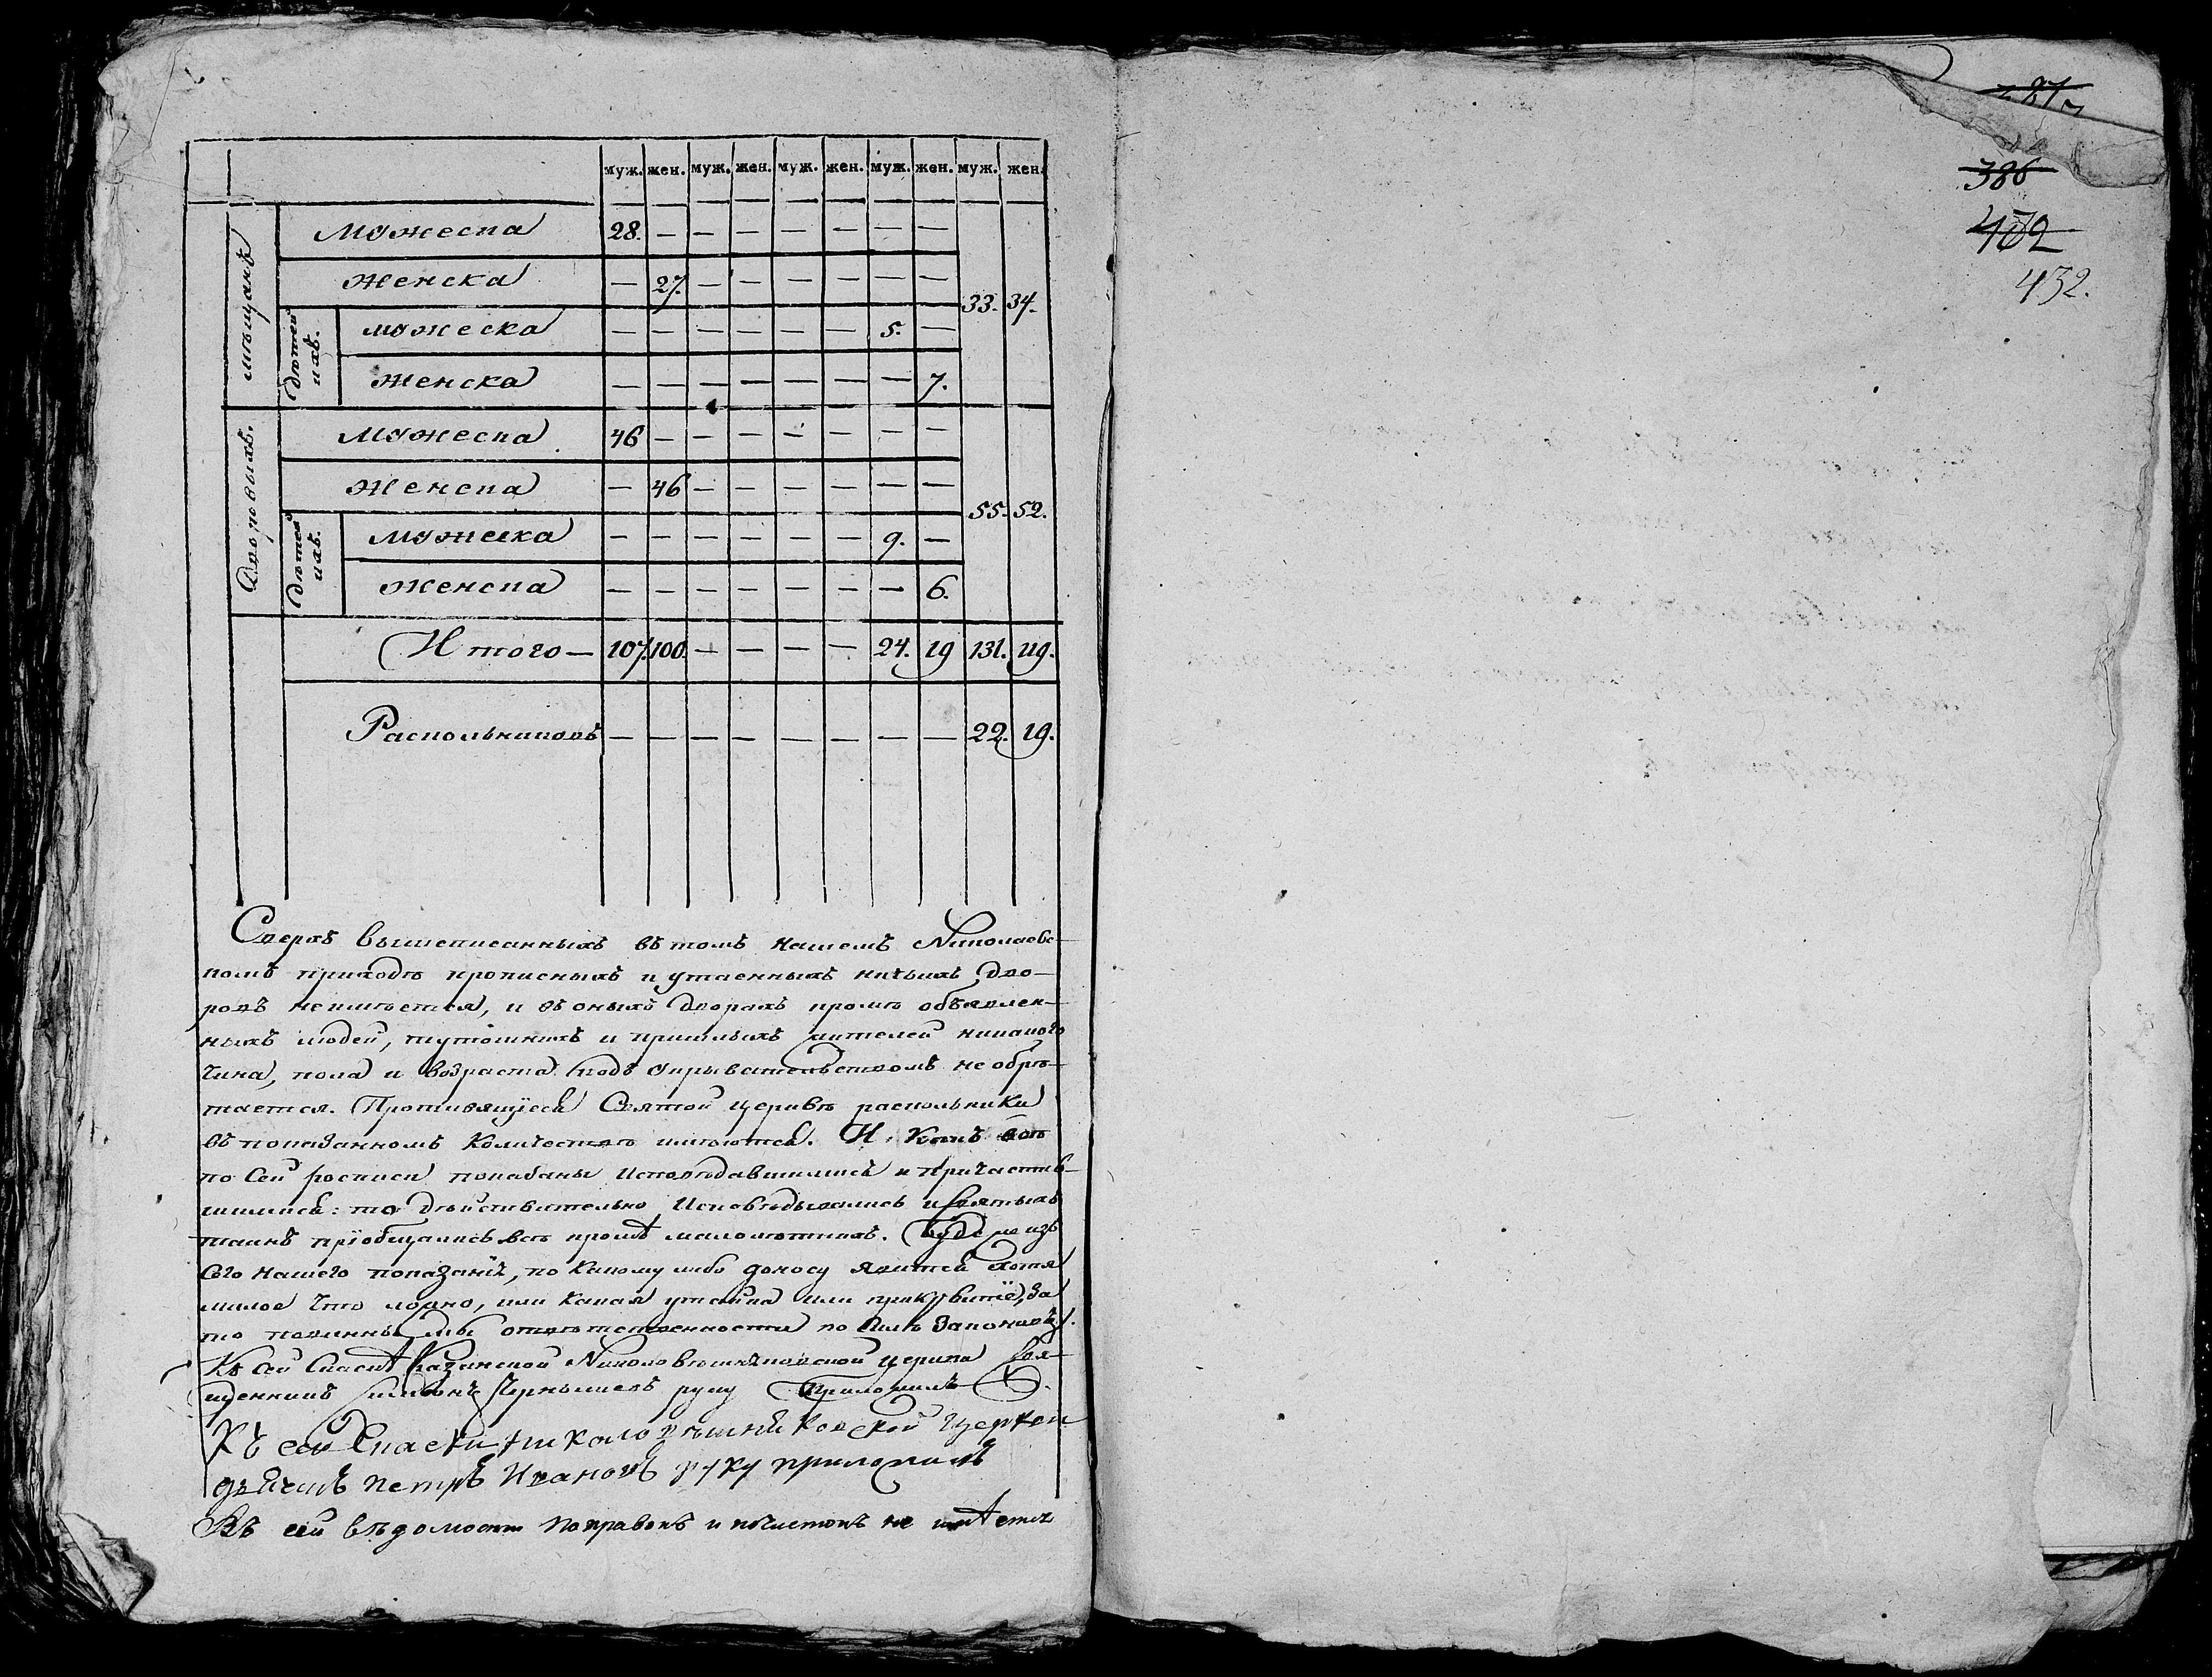 муж. жен. муж. жен. муж. жен. муж. жен. муж. жен.
мѣщанъ
Мужеска 28. — — — — — — —
Женска — 27. — — — — — — 33. 34.
дѣтей ихъ.
мужеска — — — — — — 5. —
Женска — — — — — — — 7.
Дворовыхъ.
Мужеска 46 — — — — — — —
Женска — 46 — — — — — — 55. 52.
дѣтей ихъ.
Мужеска — — — — — — 9. —
Женска — — — — — — — 6.
Итого — 107. 100. — — — — 24. 19 131. 119.
Раскольниковъ — — — — — — — — 22. 19.
Сверхъ вышеписанныхъ въ томъ нашемъ Николаевс-
комъ приходѣ прописныхъ и утаенныхъ ничьихъ дво-
ровъ неимѣется, и въ оныхъ дворахъ кромѣ объявлен-
ныхъ людей, тутошнихъ и пришлыхъ жителей никакого
чина, пола и возраста подъ укрывательствомъ не обрѣ-
тается. Противящїеся Святой церквѣ раскольники
въ показанномъ количествѣ имѣются. И какъ всѣ
по сей росписи показаны исповѣдавшимись и причастив-
шимись: то дѣйствительно исповѣдывались и святыхъ
таинъ прїобщались всѣ кромѣ малолѣтнихъ. Буде же изъ
сего нашего показанїя, по какому либо доносу явится хотя
малое что ложно, или какая утайка или прикрытїе, за
то повинны мы отвѣтственности по силѣ законовъ.
Къ сей Спаской Казанской Николовешняковской церкви свя-
щенникъ Симеонъ Чернышевъ руку приложилъ
Къ сей Спаской Николовешняковской церкви
дьячекъ Петръ Ивановъ руку приложилъ
Въ сей вѣдомости поправокъ и почистокъ не имѣется
386
402
432.